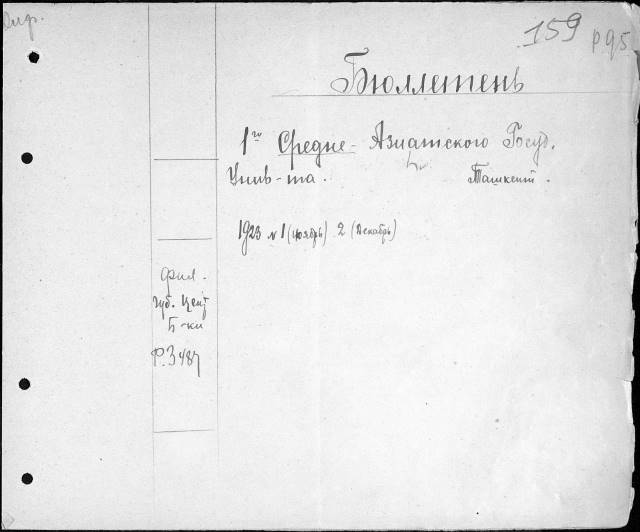 159 р95
Бюллетень
1го Средне-Азиатского Госуд.
Унив-та. Ташкент.
1923 № 1 (ноябрь) 2 (декабрь)
Фил.
Губ. Цент
Б-ки
Р.3487